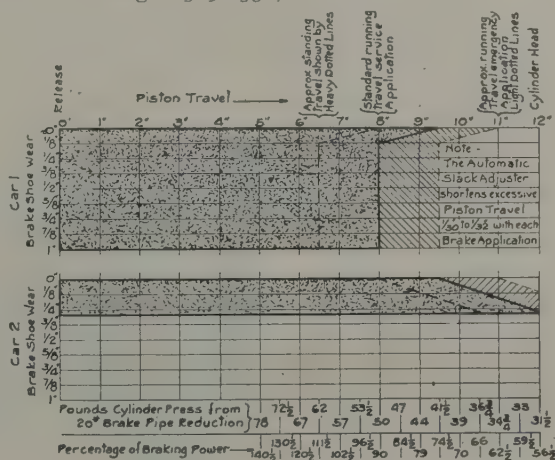 Approx. standing
Travel shown by
Heavy Dotted Lines
Standard running
Travel service
Application
Approx. running
Travel emergency
Application
Light Dotted Lines
Cylinder Head
Release
Piston Travel
0" 1" 2" 3" 4" 5" 6" 7" 8" 9" 10" 11" 12"
Car 1
Brake Shoe Wear
0"
1/8
1/4
3/8
1/2
5/8
3/4
7/8
1"
Note -
The Automatic
Slack Adjuster
shortens excessive
Piston Travel
1/30 to 1/32 with each
Brake Application
Car 2
Brake Shoe Wear
0"
1/8
1/4
3/8
1/2
5/8
3/4
7/8
1"
Pounds Cylinder Press from 72½ 62 53½ 47 41½ 36¾ 33
20# Brake Pipe Reduction 78 67 57 50 44 39 34¾ 31½
Percentage of Braking Power 130½ 111½ 96½ 84½ 74½ 66 59½
140½ 120½ 102½ 90 79 70 62½ 56½